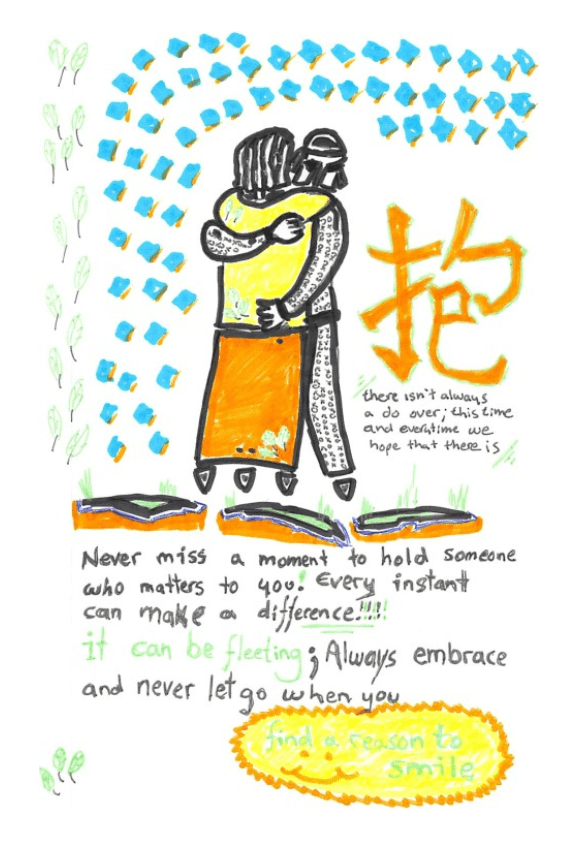 抱
there isn't always
a do over; this time
and everytime we
hope that there is
Never miss a moment to hold someone
who matters to you! Every instant
can make a difference!!!!
it can be fleeting; Always embrace
and never let go when you
find a reason to
smile